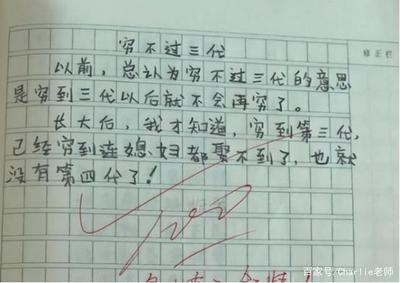 穷不过三代
修正栏
以前，总认为穷不过三代的意思
是穷到三代以后就不会再穷了。
长大后，我才知道，穷到第三代，
已经穷到连媳妇都娶不到了，也就
没有第四代了！
100
百家号/Charlie老师